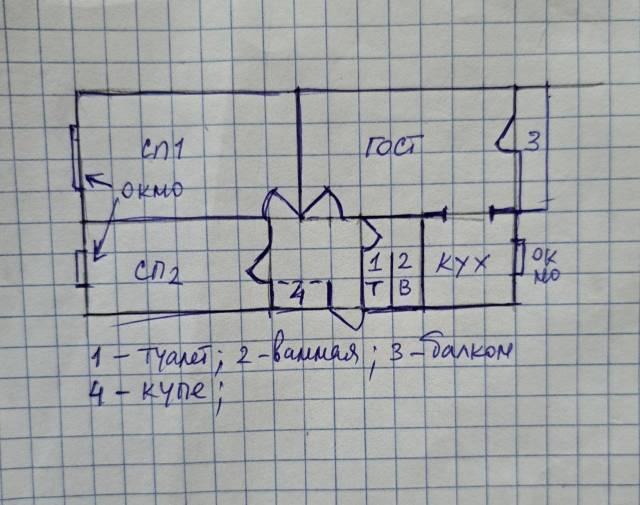 СП1
ГОСТ
3
ОКНО
СП2
4
1
Т
2
В
КУХ
ОК
НО
1 - туалет; 2 - ванная; 3 - балкон
4 - купе;